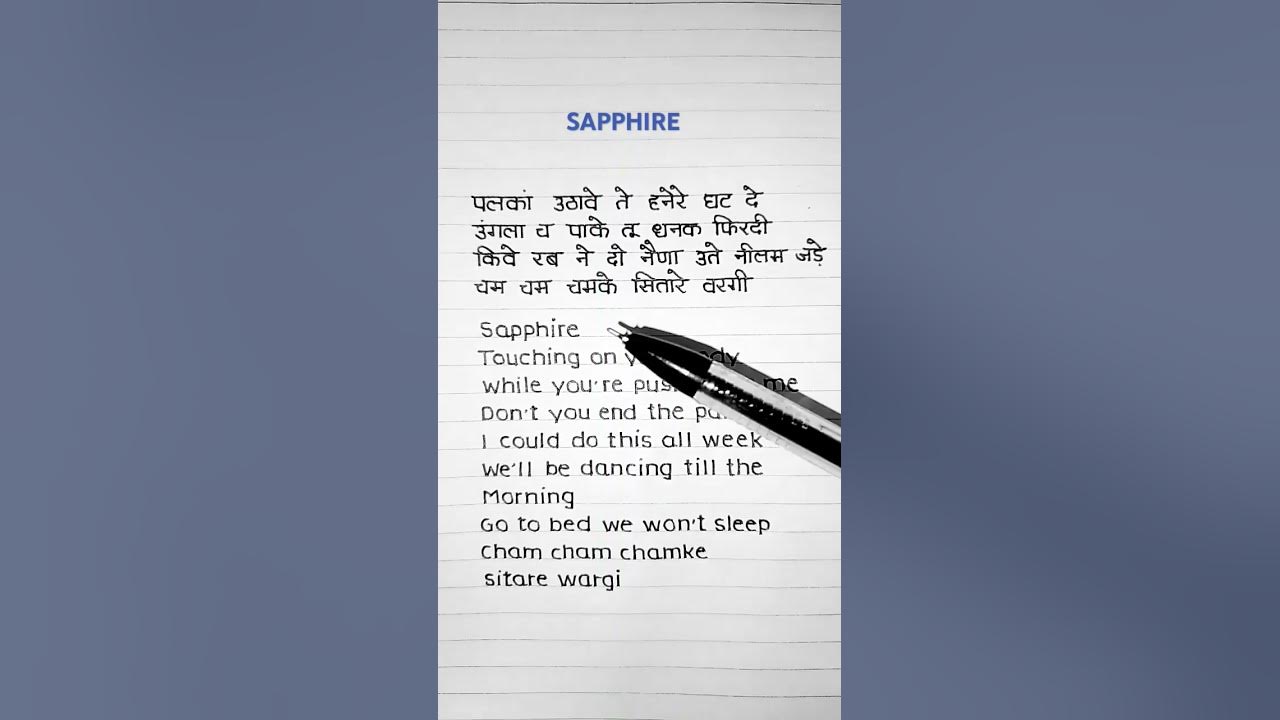 SAPPHIRE
पलकां उठावे ते हनेरे घट दे
उंगला च पाके तू धनक फिरदी
किवे रब ने दो नैणा उते नीलम जड़े
चम चम चमके सितारे वरगी
Sapphire
Touching on
while you're me
Don't you end the
I could do this all week
We'll be dancing till the
Morning
Go to bed we won't sleep
Cham cham chamke
sitare wargi